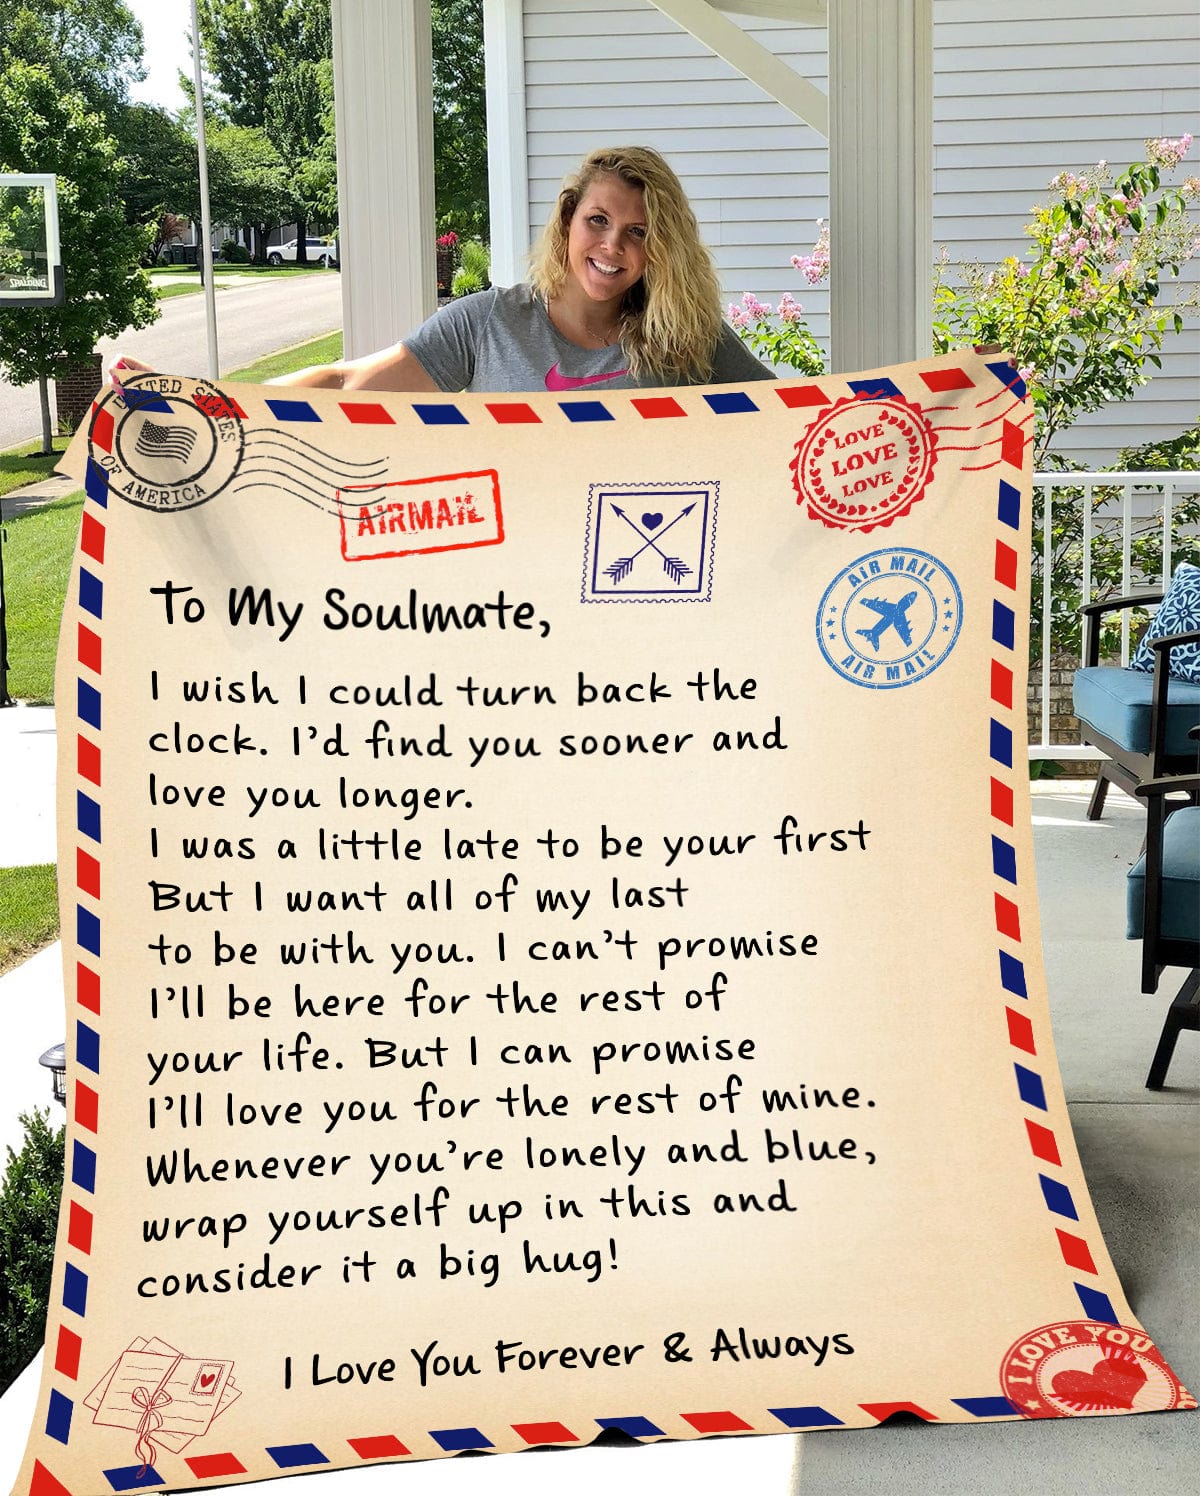 SPALDING
UNITED STATES
OF AMERICA
AIRMAIL
LOVE
LOVE
LOVE
AIR MAIL
AIR MAIL
To My Soulmate,
I wish I could turn back the
clock. I'd find you sooner and
love you longer.
I was a little late to be your first
But I want all of my last
to be with you. I can't promise
I'll be here for the rest of
your life. But I can promise
I'll love you for the rest of mine.
Whenever you're lonely and blue,
wrap yourself up in this and
consider it a big hug!
I Love You Forever & Always
I LOVE YOU